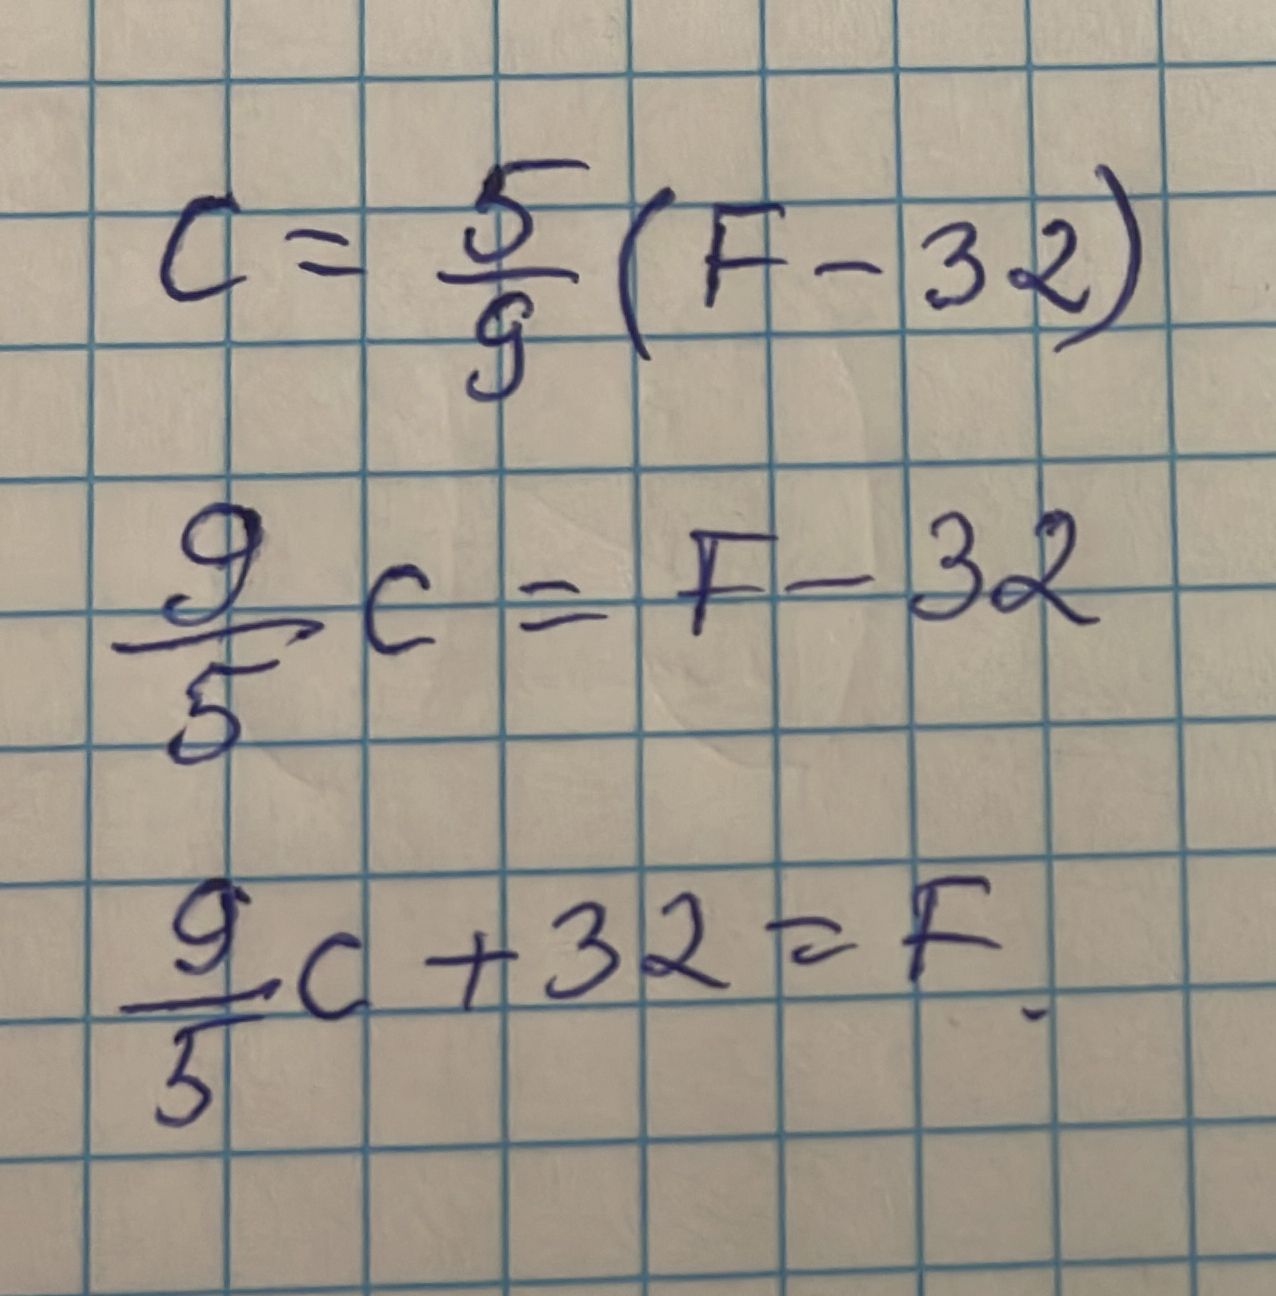 C = 5/9 (F - 32)
9/5 C = F - 32
9/5 C + 32 = F.